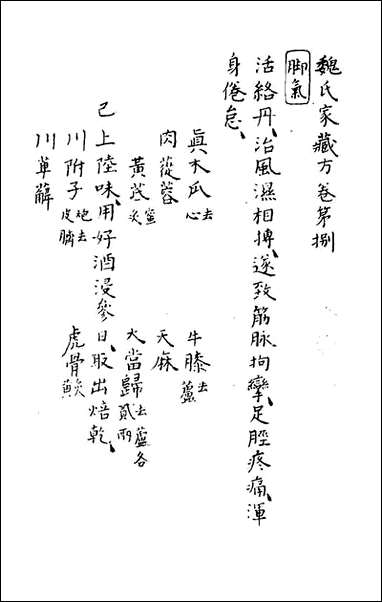 魏氏家藏方卷第捌
脚氣
活絡丹、治風濕相搏、遂致筋脉拘攣、足脛疼痛、渾
身倦怠、
真木瓜去心 牛膝去蘆
肉蓯蓉 天麻
黃芪蜜炙 大當歸去蘆各貳兩
已上陸味、用好酒浸叄日、取出焙乾、
川附子炮去皮臍 虎骨黃炙
川萆薢